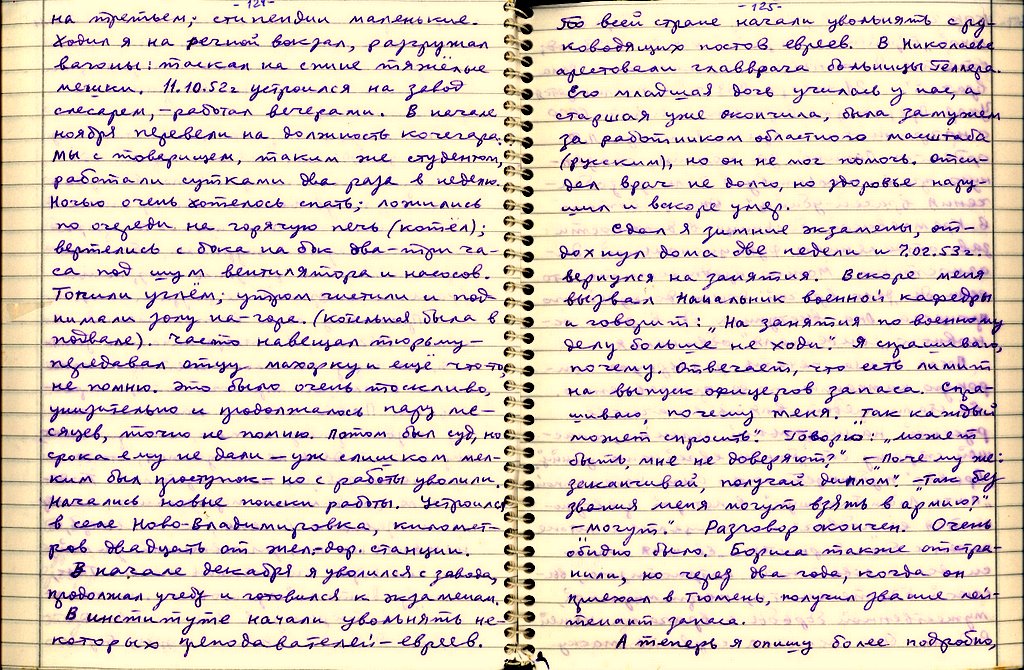 -124-
на третьем; стипендии маленькие.
Ходил я на речной вокзал, разгружал
вагоны: таскал на спине тяжёлые
мешки. 11.10.52г устроился на завод
слесарем, - работал вечерами. В начале
ноября перевели на должность кочегара.
Мы с товарищем, таким же студентом,
работали сутками два раза в неделю.
Ночью очень хотелось спать; ложились
по очереди на горячую печь (котёл);
вертелись с бока на бок два-три ча-
са под шум вентилятора и насосов.
Топили углём; утром чистили и под
нимали золу на-гора. (котельная была в
подвале). Часто навещал тюрьму-
передавал отцу махорку и ещё что-то,
не помню. Это было очень тоскливо,
унизительно и продолжалось пару ме-
сяцев, точно не помню. Потом был суд, но
срока ему не дали - уж слишком мел-
ким был проступок - но с работы уволили.
Начались новые поиски работы. Устроился
в селе Ново-Владимировка, километ-
ров двадцать от жел-дор. станции.
В начале декабря я уволился с завода,
продолжал учебу и готовился к экзаменам.
В институте начали увольнять не-
которых преподавателей - евреев.
-125-
По всей стране начали увольнять с ру-
ководящих постов евреев. В Николаеве
арестовали главврача больницы Теллера.
Его младшая дочь училась у нас, а
старшая уже окончила, была замужем
за работником областного масштаба
(русским), но он не мог помочь. Отси-
дел врач не долго, но здоровье нару-
шил и вскоре умер.
Сдал я зимние экзамены, от-
дохнул дома две недели и 7.02.53г.
вернулся на занятия. Вскоре меня
вызвал начальник военной кафедры
и говорит: „На занятия по военному
делу больше не ходи". Я спрашиваю,
почему. Отвечает, что есть лимит
на выпуск офицеров запаса. Спра-
шиваю, почему меня. "Так каждый
может спросить". Говорю: „может
быть, мне не доверяют?" - „Почему же:
заканчивай, получай диплом" - „Так без
звания меня могут взять в армию?"
-„могут". Разговор окончен. Очень
обидно было. Бориса также отстра-
нили, но через два года, когда он
приехал в Тюмень, получил звание лей-
тенант запаса.
А теперь я опишу более подробно,